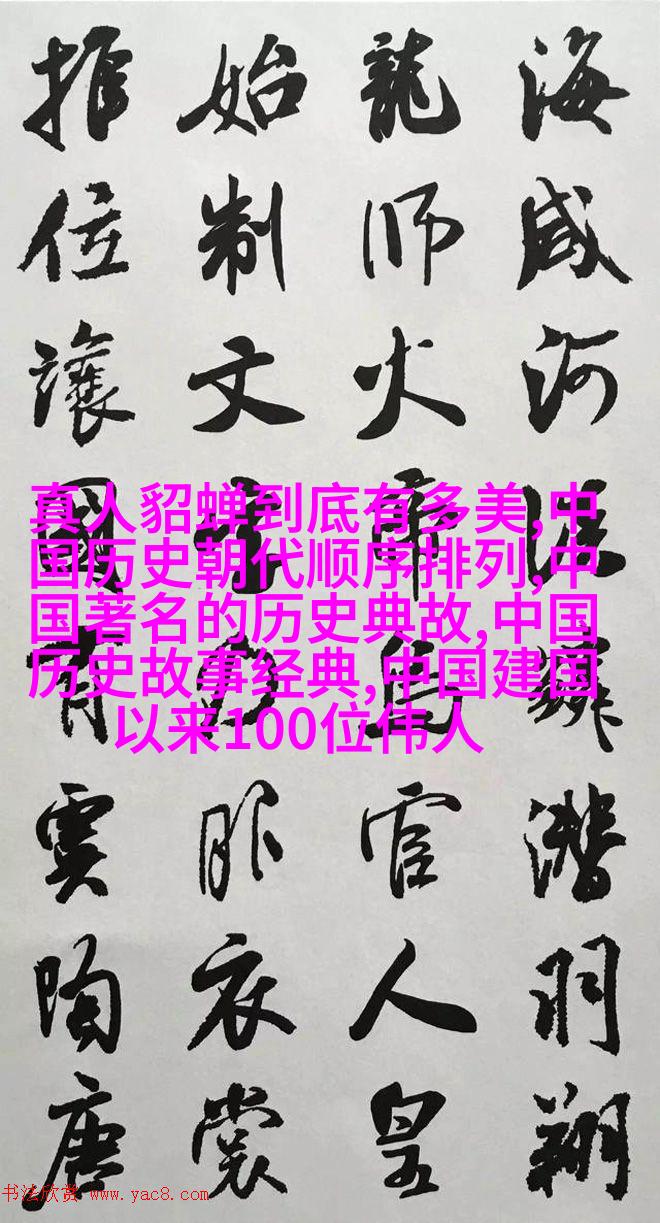 海咸河淡鱗潛羽翔
龍師火帝鳥官人皇
始制文字乃服衣裳
推位讓國有虞陶唐
真人貂蝉到底有多美,中
国历史朝代顺序排列,中
国著名的历史典故,中国
历史故事经典,中国建国
以来100位伟人
书法欣赏 www.yac8.com